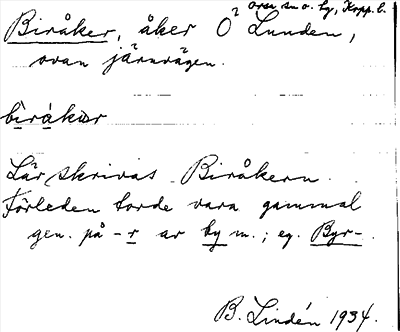 Orsa sn o. by, Kopp. l.
Biråker, åker Ö² Lunden,
ovan järnvägen.
bìråkær
Lär skrivas Biråkern.
Förleden torde vara gammal
gen. på -r av by m.; eg. Byr-.
B. Lindén 1934.